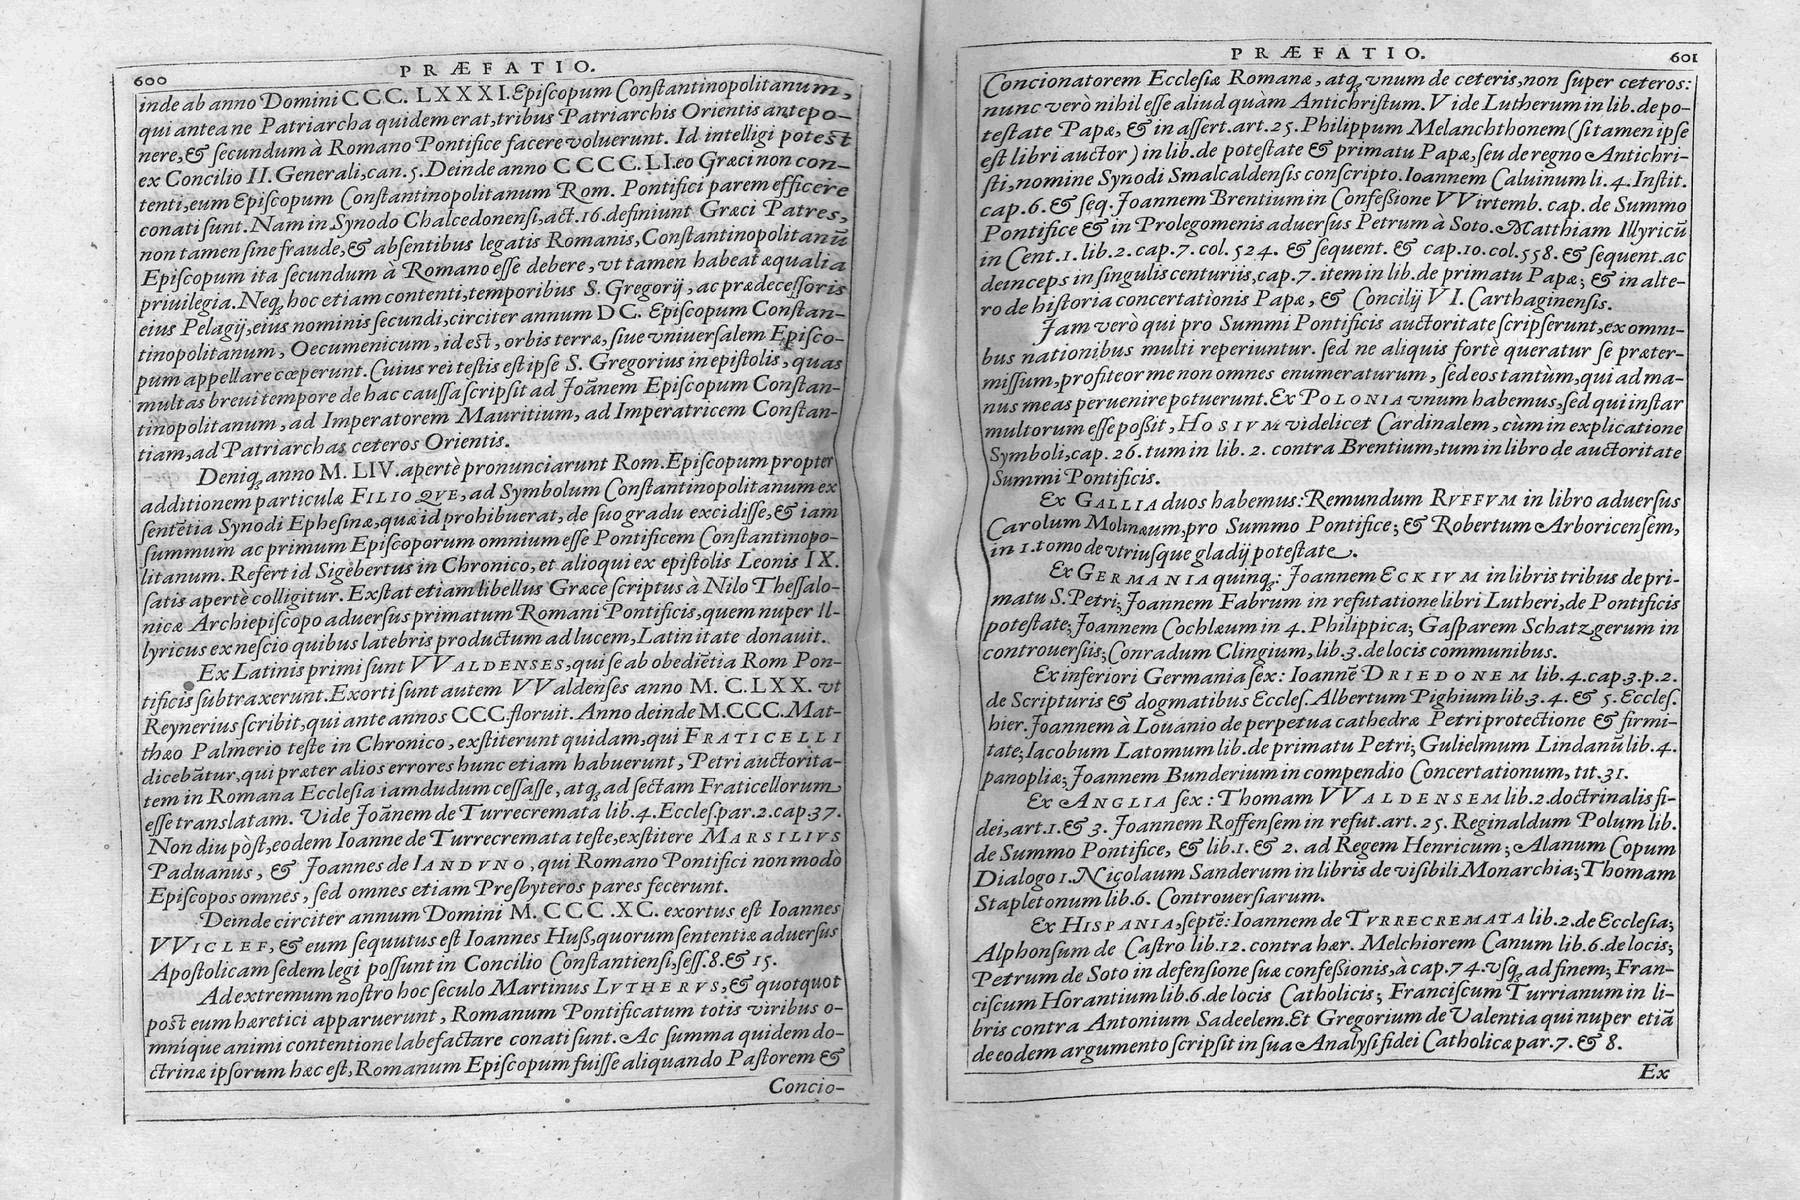 600
PRÆFATIO.
inde ab anno Domini CCC. LXXXI. Episcopum Constantinopolitanum,
qui antea ne Patriarcha quidem erat, tribus Patriarchis Orientis antepo-
nere, & secundum à Romano Pontifice facere voluerunt. Id intelligi potest
ex Concilio II. Generali, can. 5. Deinde anno CCCC. LI. eo Græci non con-
tenti, eum Episcopum Constantinopolitanum Rom. Pontifici parem efficere
conati sunt. Nam in Synodo Chalcedonensi, act. 16. definiunt Græci Patres,
non tamen sine fraude, & absentibus legatis Romanis, Constantinopolitanū
Episcopum ita secundum à Romano esse debere, vt tamen habeat æqualia
priuilegia. Neq; hoc etiam contenti, temporibus S. Gregorij, ac prædecessoris
eius Pelagij, eius nominis secundi, circiter annum DC. Episcopum Constan-
tinopolitanum, Oecumenicum, id est, orbis terræ, siue vniuersalem Episco-
pum appellare cœperunt. Cuius rei testis est ipse S. Gregorius in epistolis, quas
multas breui tempore de hac caussa scripsit ad Joānem Episcopum Constan-
tinopolitanum, ad Imperatorem Mauritium, ad Imperatricem Constan-
tiam, ad Patriarchas ceteros Orientis.
Deniq; anno M. LIV. apertè pronunciarunt Rom. Episcopum propter
additionem particulæ FILIOQVE, ad Symbolum Constantinopolitanum ex
sentētia Synodi Ephesinæ, quæ id prohibuerat, de suo gradu excidisse, & iam
summum ac primum Episcoporum omnium esse Pontificem Constantinopo-
litanum. Refert id Sigebertus in Chronico, et alioqui ex epistolis Leonis IX.
satis apertè colligitur. Exstat etiam libellus Græcè scriptus à Nilo Thessalo-
nicæ Archiepiscopo aduersus primatum Romani Pontificis, quem nuper Il-
lyricus ex nescio quibus latebris productum ad lucem, Latinitate donauit.
Ex Latinis primi sunt VVALDENSES, qui se ab obediētia Rom Pon-
tificis subtraxerunt. Exorti sunt autem VValdenses anno M. C. LXX. vt
Reynerius scribit, qui ante annos CCC. floruit. Anno deinde M.CCC. Mat-
thæo Palmerio teste in Chronico, exstiterunt quidam, qui FRATICELLI
dicebātur, qui præter alios errores hunc etiam habuerunt, Petri auctorita-
tem in Romana Ecclesia iamdudum cessasse, atq; ad sectam Fraticellorum
esse translatam. Vide Joānem de Turrecremata lib. 4. Eccles. par. 2. cap. 37.
Non diu pòst, eodem Ioanne de Turrecremata teste, exstitere MARSILIVS
Paduanus, & Joannes de IANDVNO, qui Romano Pontifici non modò
Episcopos omnes, sed omnes etiam Presbyteros pares fecerunt.
Deinde circiter annum Domini M. CCC .XC. exortus est Ioannes
VVICLEF, & eum sequutus est Ioannes Huß, quorum sententiæ aduersus
Apostolicam sedem legi possunt in Concilio Constantiensi, sess. 8. & 15.
Ad extremum nostro hoc seculo Martinus LVTHERVS, & quotquot
post eum hæretici apparuerunt, Romanum Pontificatum totis viribus o-
mnique animi contentione labefactare conati sunt. Ac summa quidem do-
ctrinæ ipsorum hæc est, Romanum Episcopum fuisse aliquando Pastorem &
Concio-
PRÆFATIO.
601
Concionatorem Ecclesiæ Romanæ, atq; vnum de ceteris, non super ceteros:
nunc verò nihil esse aliud quàm Antichristum. Vide Lutherum in lib. de po-
testate Papæ, & in assert. art. 25. Philippum Melanchthonem (si tamen ipse
est libri auctor) in lib. de potestate & primatu Papæ, seu de regno Antichri-
sti, nomine Synodi Smalcaldensis conscripto. Ioannem Caluinum li. 4. Instit.
cap. 6. & seq. Joannem Brentium in Confeßione VVirtemb. cap. de Summo
Pontifice & in Prolegomenis aduersus Petrum à Soto. Matthiam Illyricū
in Cent. 1. lib. 2. cap. 7. col. 524. & sequent. & cap. 10. col. 558. & sequent. ac
deinceps in singulis centuriis, cap. 7. item in lib. de primatu Papæ; & in alte-
ro de historia concertationis Papæ, & Concilij VI. Carthaginensis.
Jam verò qui pro Summi Pontificis auctoritate scripserunt, ex omni-
bus nationibus multi reperiuntur. sed ne aliquis fortè queratur se præter-
missum, profiteor me non omnes enumeraturum, sed eos tantùm, qui ad ma-
nus meas peruenire potuerunt. Ex POLONIA vnum habemus, sed qui instar
multorum esse poßit, HOSIVM videlicet Cardinalem, cùm in explicatione
Symboli, cap. 26. tum in lib. 2. contra Brentium, tum in libro de auctoritate
Summi Pontificis.
Ex GALLIA duos habemus: Remundum RVFFVM in libro aduersus
Carolum Molinæum, pro Summo Pontifice; & Robertum Arboricensem,
in 1. tomo de vtriusque gladij potestate.
Ex GERMANIA quinq;: Joannem ECKIVM in libris tribus de pri-
matu S. Petri; Joannem Fabrum in refutatione libri Lutheri, de Pontificis
potestate; Joannem Cochlæum in 4. Philippica; Gasparem Schatzgerum in
controuersiis; Conradum Clingium, lib. 3. de locis communibus.
Ex inferiori Germania sex: Ioannē DRIEDONEM lib. 4. cap. 3. p. 2.
de Scripturis & dogmatibus Eccles. Albertum Pighium lib. 3. 4. & 5. Eccles.
hier. Joannem à Louanio de perpetua cathedræ Petri protectione & firmi-
tate; Iacobum Latomum lib. de primatu Petri; Gulielmum Lindanū lib. 4.
panopliæ; Joannem Bunderium in compendio Concertationum, tit. 31.
Ex ANGLIA sex: Thomam VVALDENSEM lib. 2. doctrinalis fi-
dei, art. 1. & 3. Joannem Roffensem in refut. art. 25. Reginaldum Polum lib.
de Summo Pontifice, & lib. 1. & 2. ad Regem Henricum; Alanum Copum
Dialogo 1. Nicolaum Sanderum in libris de visibili Monarchia; Thomam
Stapletonum lib. 6. Controuersiarum.
Ex HISPANIA, septē: Ioannem de TVRRECREMATA lib. 2. de Ecclesia;
Alphonsum de Castro lib. 12. contra hær. Melchiorem Canum lib. 6. de locis;
Petrum de Soto in defensione suæ confeßionis, à cap. 74. vsq; ad finem; Fran-
ciscum Horantium lib. 6. de locis Catholicis; Franciscum Turrianum in li-
bris contra Antonium Sadeelem. Et Gregorium de Valentia qui nuper etiā
de eodem argumento scripsit in sua Analysi fidei Catholicæ par. 7. & 8.
Ex